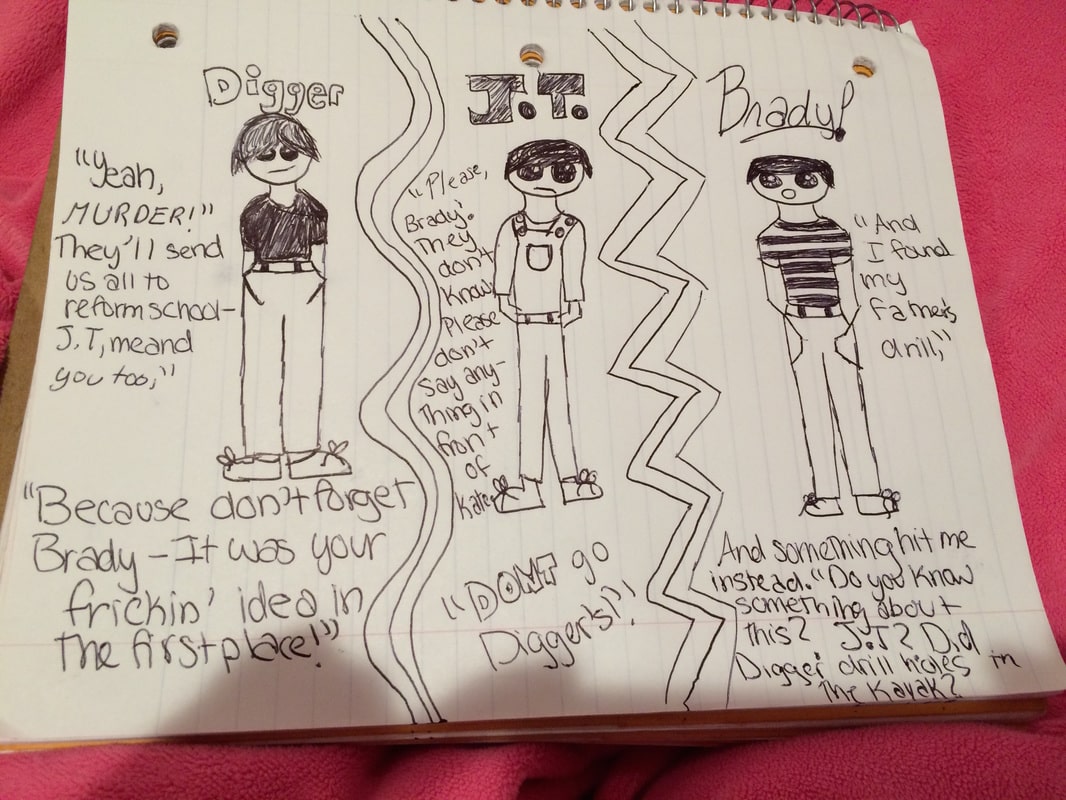 Digger
"Yeah,
MURDER!"
They'll send
us all to
reform school—
J.T, me and
you too,"
"Because don't forget
Brady — It was your
frickin' idea in
the first place!"
J.T.
"Please,
Brady.
They
don't
know
Please
don't
say any-
thing in
front
of
Kate
"DON'T go
Digger's!"
Brady!
"And
I found
my
father's
drill,"
And something hit me
instead. "Do you know
something about
this? J.T? Did
Digger drill holes in
the Kayak?